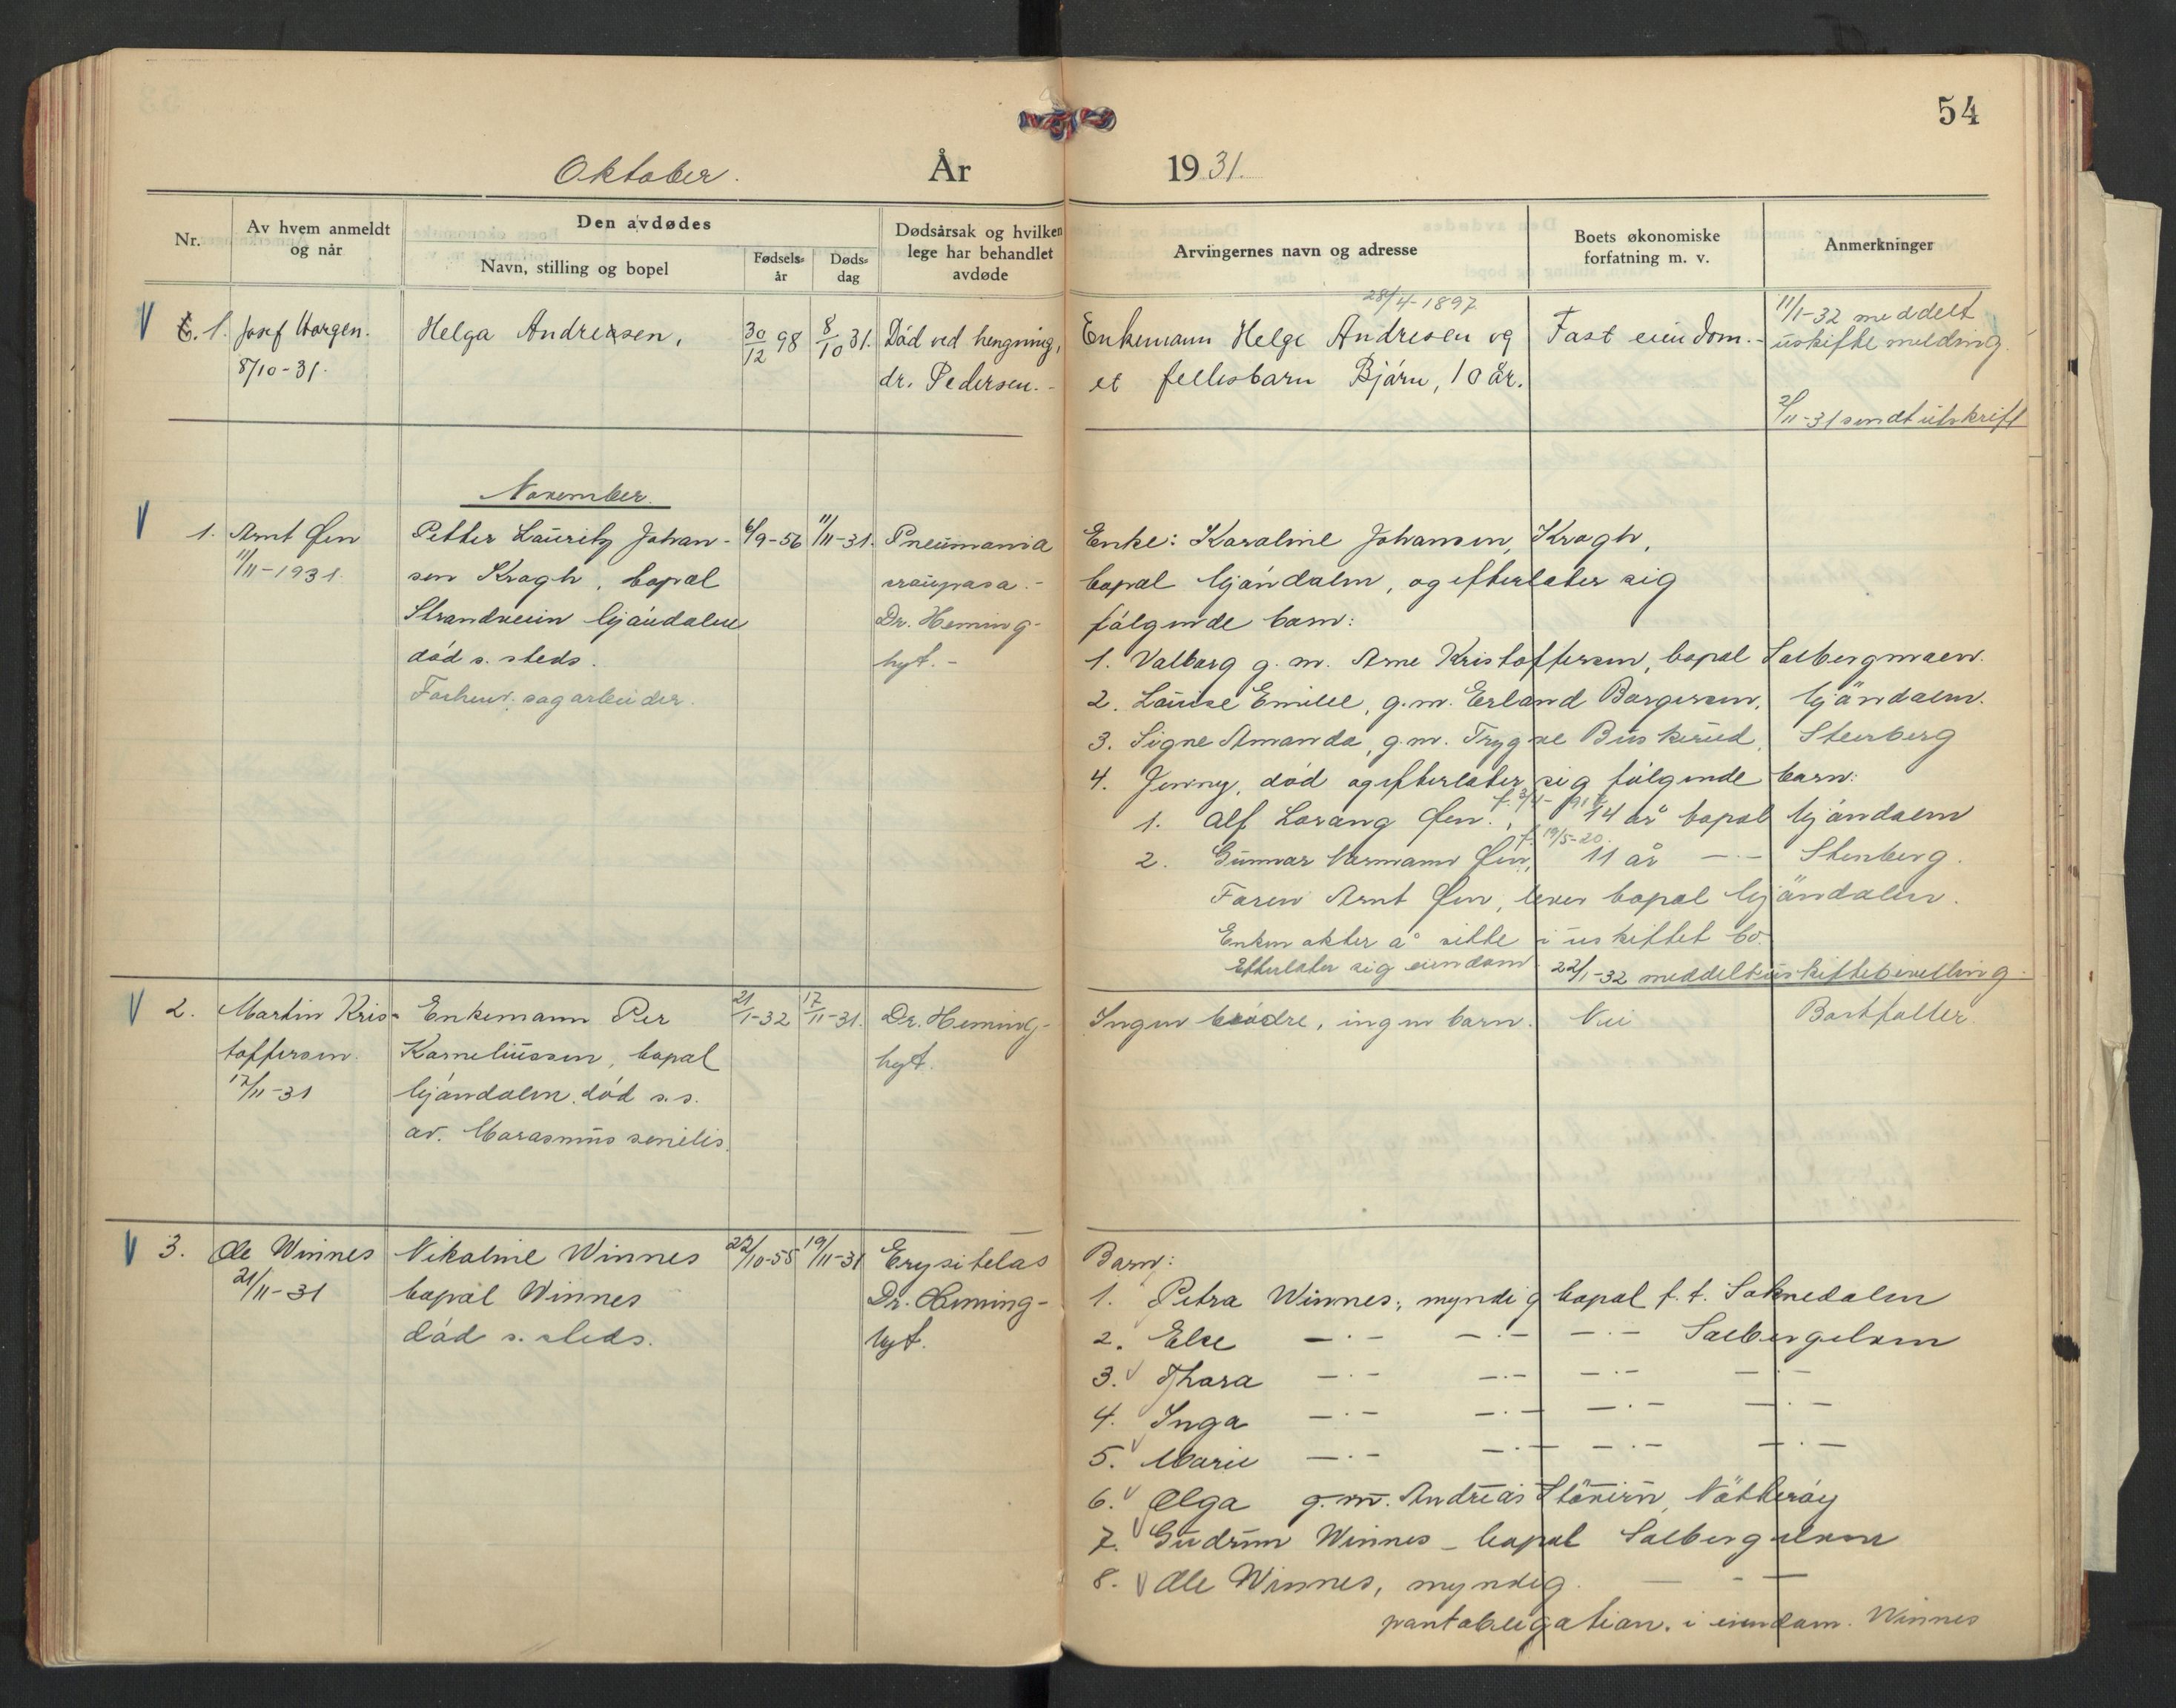 54
Oktober. År 1931.
Nr.
Av hvem anmeldt og når
Den avdødes
Navn, stilling og bopel
Fødsels-år
Døds-dag
Dødsårsak og hvilken lege har behandlet avdøde
Arvingernes navn og adresse
Boets økonomiske forfatning m. v.
Anmerkninger
1. Josef Horgen.
8/10-31.
Helga Andresen,
30/12 98
8/10 31.
Død ved hengning,
dr. Pedersen.-
28/4-1897
Enkemann Helge Andresen og
et fellesbarn Bjørn, 10 år.
Fast eiendom.-
11/1-32 meddelt
uskiftemelding.
2/11-31 sendt utskrift
November.
1. Arnt Øen
11/11-1931.
Petter Lauritz Johan-
sen Kragh, bopæl
Strandveien Mjøndalen
død s. steds.
Forhenv. sagarbeider.
6/9-56
11/11-31.
Pneumonia
crouposa.-
Dr. Heming-
hyt.-
Enke: Karoline Johansen, Kragh,
bopæl Mjøndalen, og efterlater sig
følgende barn:
1. Valborg g. m. Arne Kristoffersen, bopæl Solbergmoen.
2. Louise Emilie, g.m. Erland Borgersen, Mjøndalen.
3. Signe Amanda, g.m. Trygve Buskerud, Steinberg
4. Jenny, død og efterlater sig følgende barn:
1. Alf Lorang Øen. f. 3/4-191 14 år bopæl Mjøndalen
2. Gunnar Hermann Øen, f. 19/5-20. 11 år -·- Stenberg.
Faren Arnt Øen, lever bopæl Mjøndalen.
Enken akter å sitte i uskiftet bo.
Etterlater sig eiendom 22/1-32 meddelt uskiftebevilling.
2. Martin Kris-
toffersen.
17/11-31
Enkemann Per
Korneliussen, bopæl
Mjøndalen, død s.s.
av. Marasmus senilis.
21/1-32
17/11-31.
Dr. Heming-
hyt.
Ingen brødre, ingen barn.
Nei
Bortfaller.
3. Ole Winnes
21/11-31
Nikoline Winnes
bopæl Winnes
død s. steds.
22/10-55
19/11-31
Erysipelas
Dr. Heming-
hyt.
Barn:
1. Petra Winnes, myndig bopæl f. t. Soknedalen
2. Else -·- -·- -·- Solbergelven
3. Thora -·- -·- -·- -·-
4. Inga -·- -·- -·- -·-
5. Marie -·- -·- -·- -·-
6. Olga g. m. Andreas Nøtterøy
7. Gudrun Winnes - bopæl Solbergelven
8. Ole Winnes, myndig. - - -
pantobligation. i eiendom. Winnes